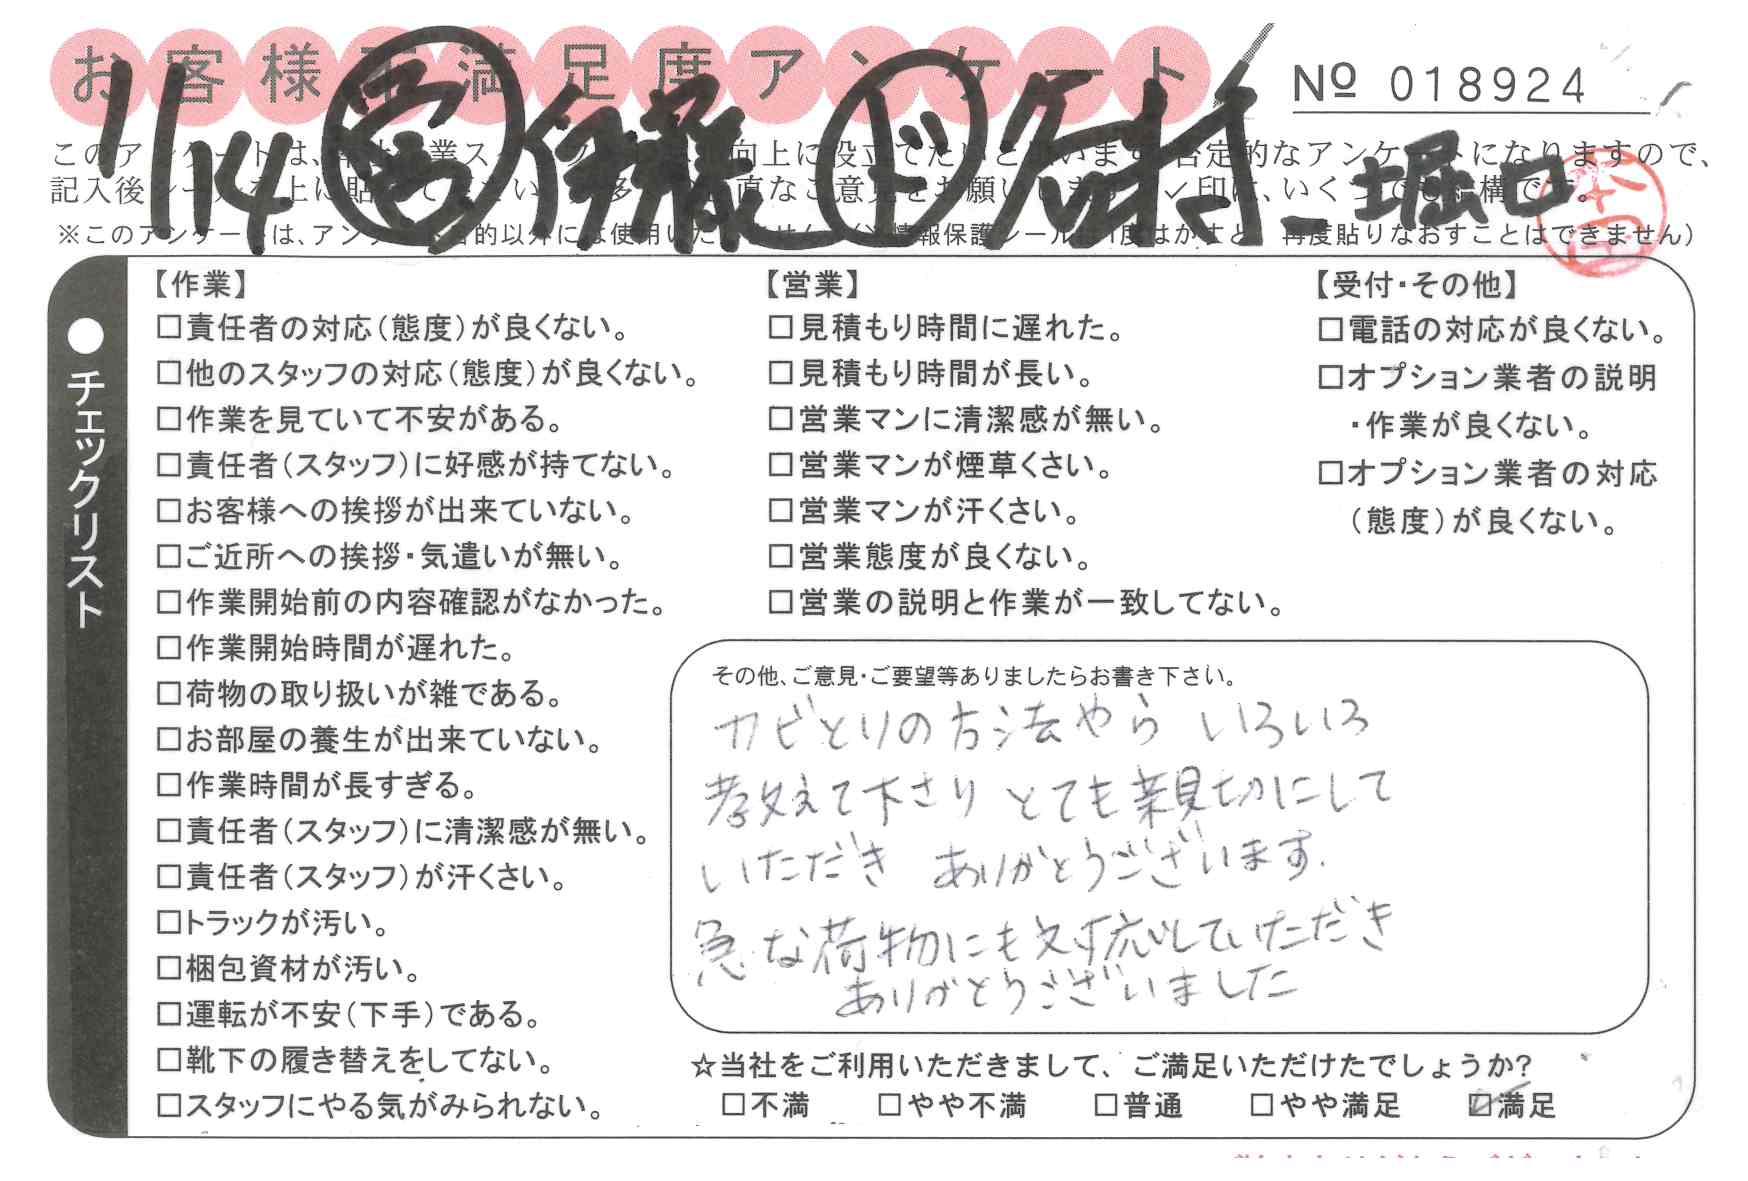 お客様不満足度アンケート
Nº 018924
1/14 営 伊藤 ド 名村、堀口
このアンケートは、
業スタッフ
向上に役立てたいと思います。否定的なアンケートになりますので、
記入後シールを上に貼って
直なご意見をお願いします。✓印は、いくつでも結構です。
※このアンケートは、アンケート目的以外には使用いたしません。(※情報保護シールは1度はがすと、再度貼りなおすことはできません)
●チェックリスト
【作業】
□責任者の対応(態度)が良くない。
□他のスタッフの対応(態度)が良くない。
□作業を見ていて不安がある。
□責任者(スタッフ)に好感が持てない。
□お客様への挨拶が出来ていない。
□ご近所への挨拶・気遣いが無い。
□作業開始前の内容確認がなかった。
□作業開始時間が遅れた。
□荷物の取り扱いが雑である。
□お部屋の養生が出来ていない。
□作業時間が長すぎる。
□責任者(スタッフ)に清潔感が無い。
□責任者(スタッフ)が汗くさい。
□トラックが汚い。
□梱包資材が汚い。
□運転が不安(下手)である。
□靴下の履き替えをしてない。
□スタッフにやる気がみられない。
【営業】
□見積もり時間に遅れた。
□見積もり時間が長い。
□営業マンに清潔感が無い。
□営業マンが煙草くさい。
□営業マンが汗くさい。
□営業態度が良くない。
□営業の説明と作業が一致してない。
【受付・その他】
□電話の対応が良くない。
□オプション業者の説明
・作業が良くない。
□オプション業者の対応
(態度)が良くない。
その他、ご意見・ご要望等ありましたらお書き下さい。
カビとりの方法やら いろいろ
教えて下さり とても親切にして
いただき ありがとうございます.
急な荷物にも対応していただき
ありがとうございました
☆当社をご利用いただきまして、ご満足いただけたでしょうか?
□不満 □やや不満 □普通 □やや満足 ☑満足